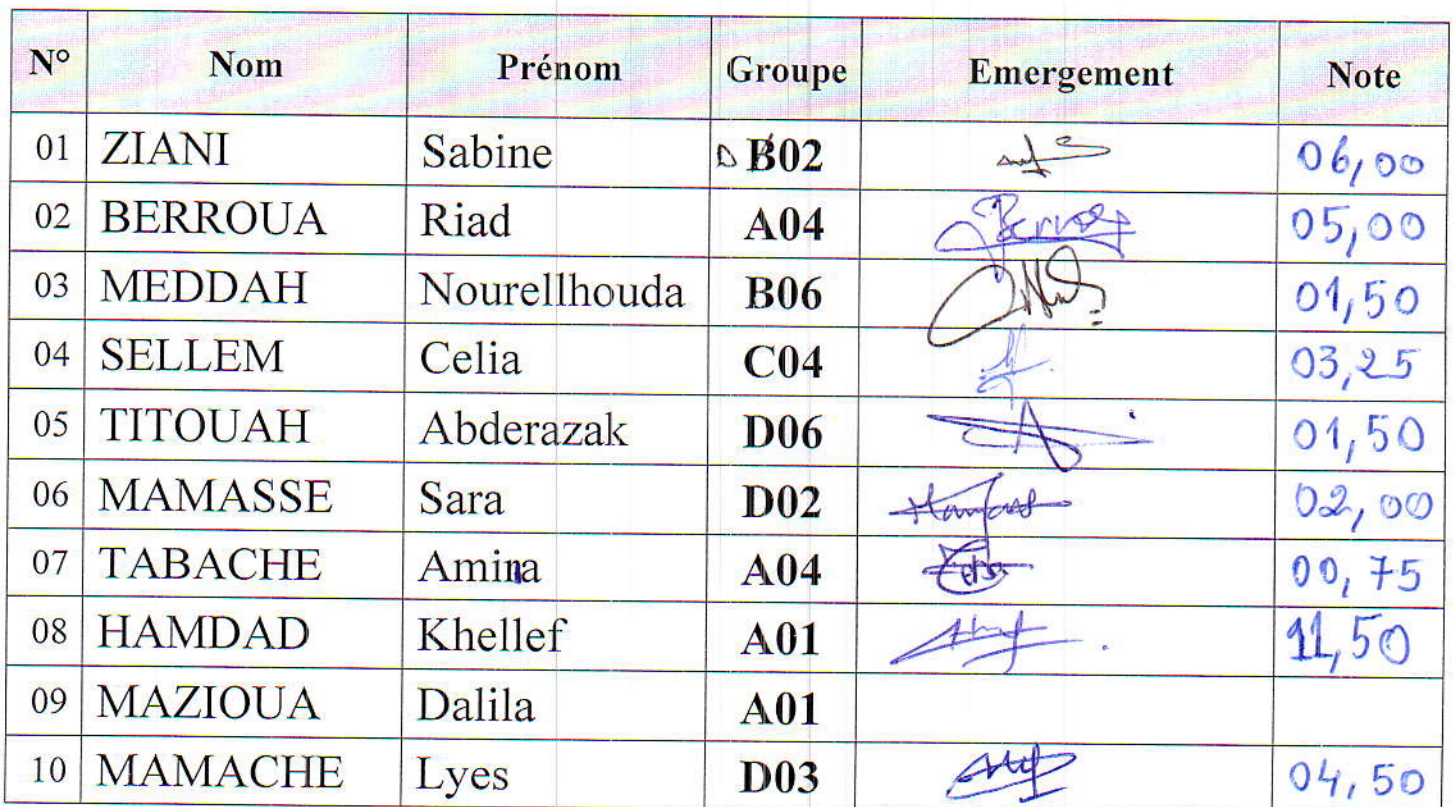 N° Nom Prénom Groupe Emergement Note
01 ZIANI Sabine B02 06,00
02 BERROUA Riad A04 05,00
03 MEDDAH Nourellhouda B06 01,50
04 SELLEM Celia C04 03,25
05 TITOUAH Abderazak D06 01,50
06 MAMASSE Sara D02 02,00
07 TABACHE Amina A04 00,75
08 HAMDAD Khellef A01 11,50
09 MAZIOUA Dalila A01
10 MAMACHE Lyes D03 04,50